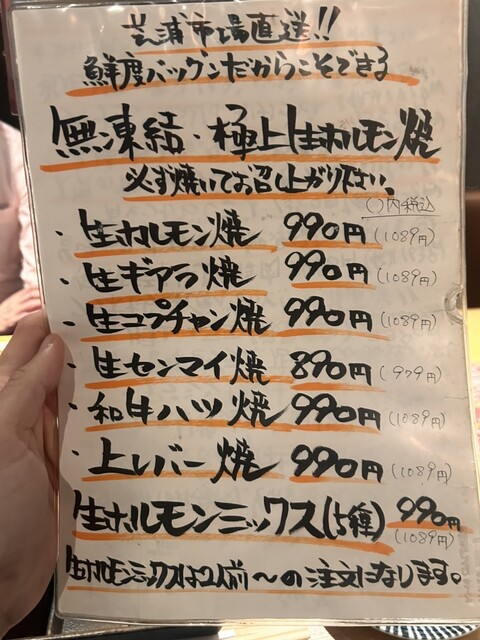 芝浦市場直送!!
鮮度バツグンだからこそできる
無凍結・極上生ホルモン焼
必ず焼いてお召し上がり下さい。
()内税込
・生ホルモン焼 990円 (1089円)
・生ギアラ焼 990円 (1089円)
・生コプチャン焼 990円 (1089円)
・生センマイ焼 890円 (979円)
・和牛ハツ焼 990円 (1089円)
・上レバー焼 990円 (1089円)
生ホルモンミックス(5種) 990円
(1089円)
生ホルモンミックスは2人前〜の注文になります。